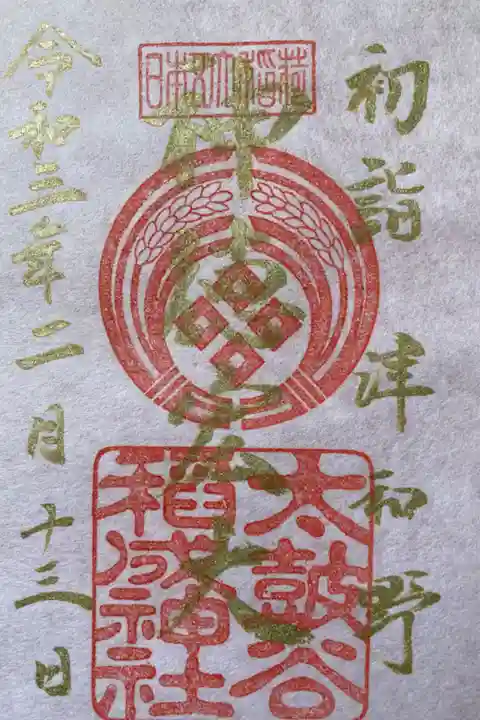 初詣 津和野
日本五大稲荷
太鼓谷
稲成神社
令和三年二月十三日